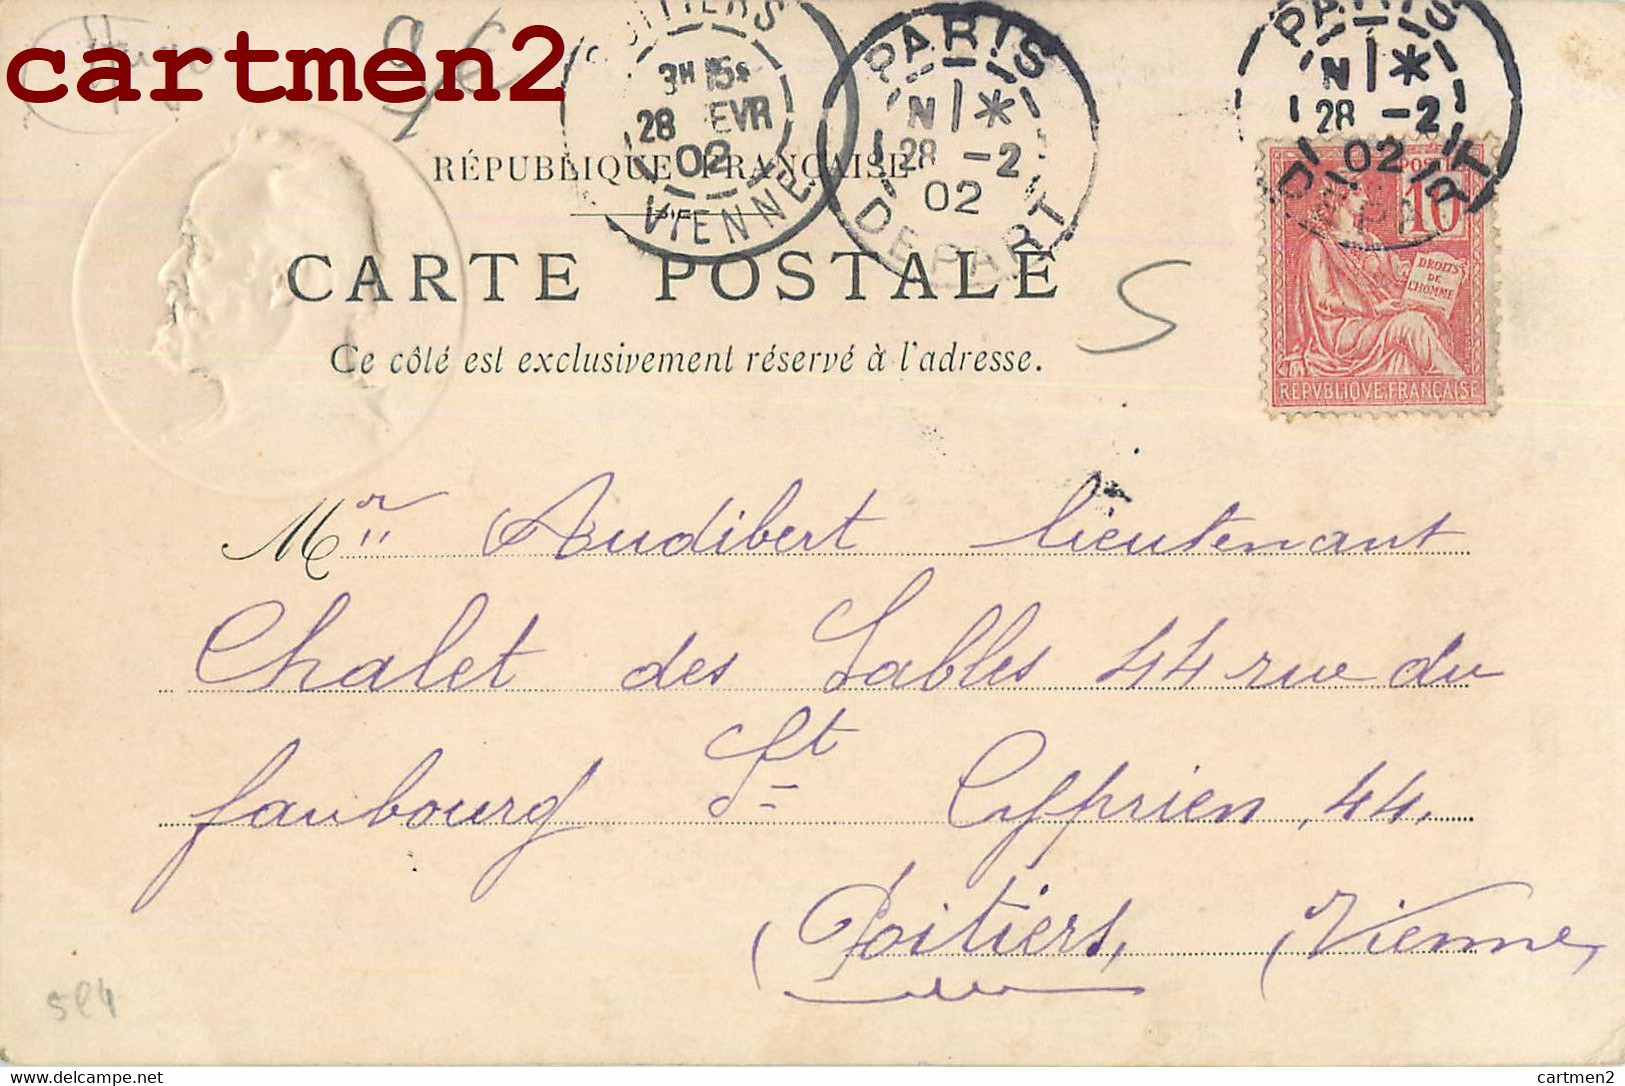 cartmen2
Hugo
9,€
POITIERS
3H 15*
28 FEVR
02
VIENNE
PARIS
N I *
28 -2
02
DEPART
PARIS
N I *
28 -2
02
DEPART
RÉPUBLIQUE FRANÇAISE
CARTE POSTALE
Ce côté est exclusivement réservé à l'adresse.
5
POSTES
10
DROITS
DE
L'HOMME
REPVBLIQVE·FRANÇAISE
Mr Audibert lieutenant
Chalet des Sables 44 rue du
faubourg St Cyprien, 44.
(Poitiers, (Vienne,
5e4
cartmen2